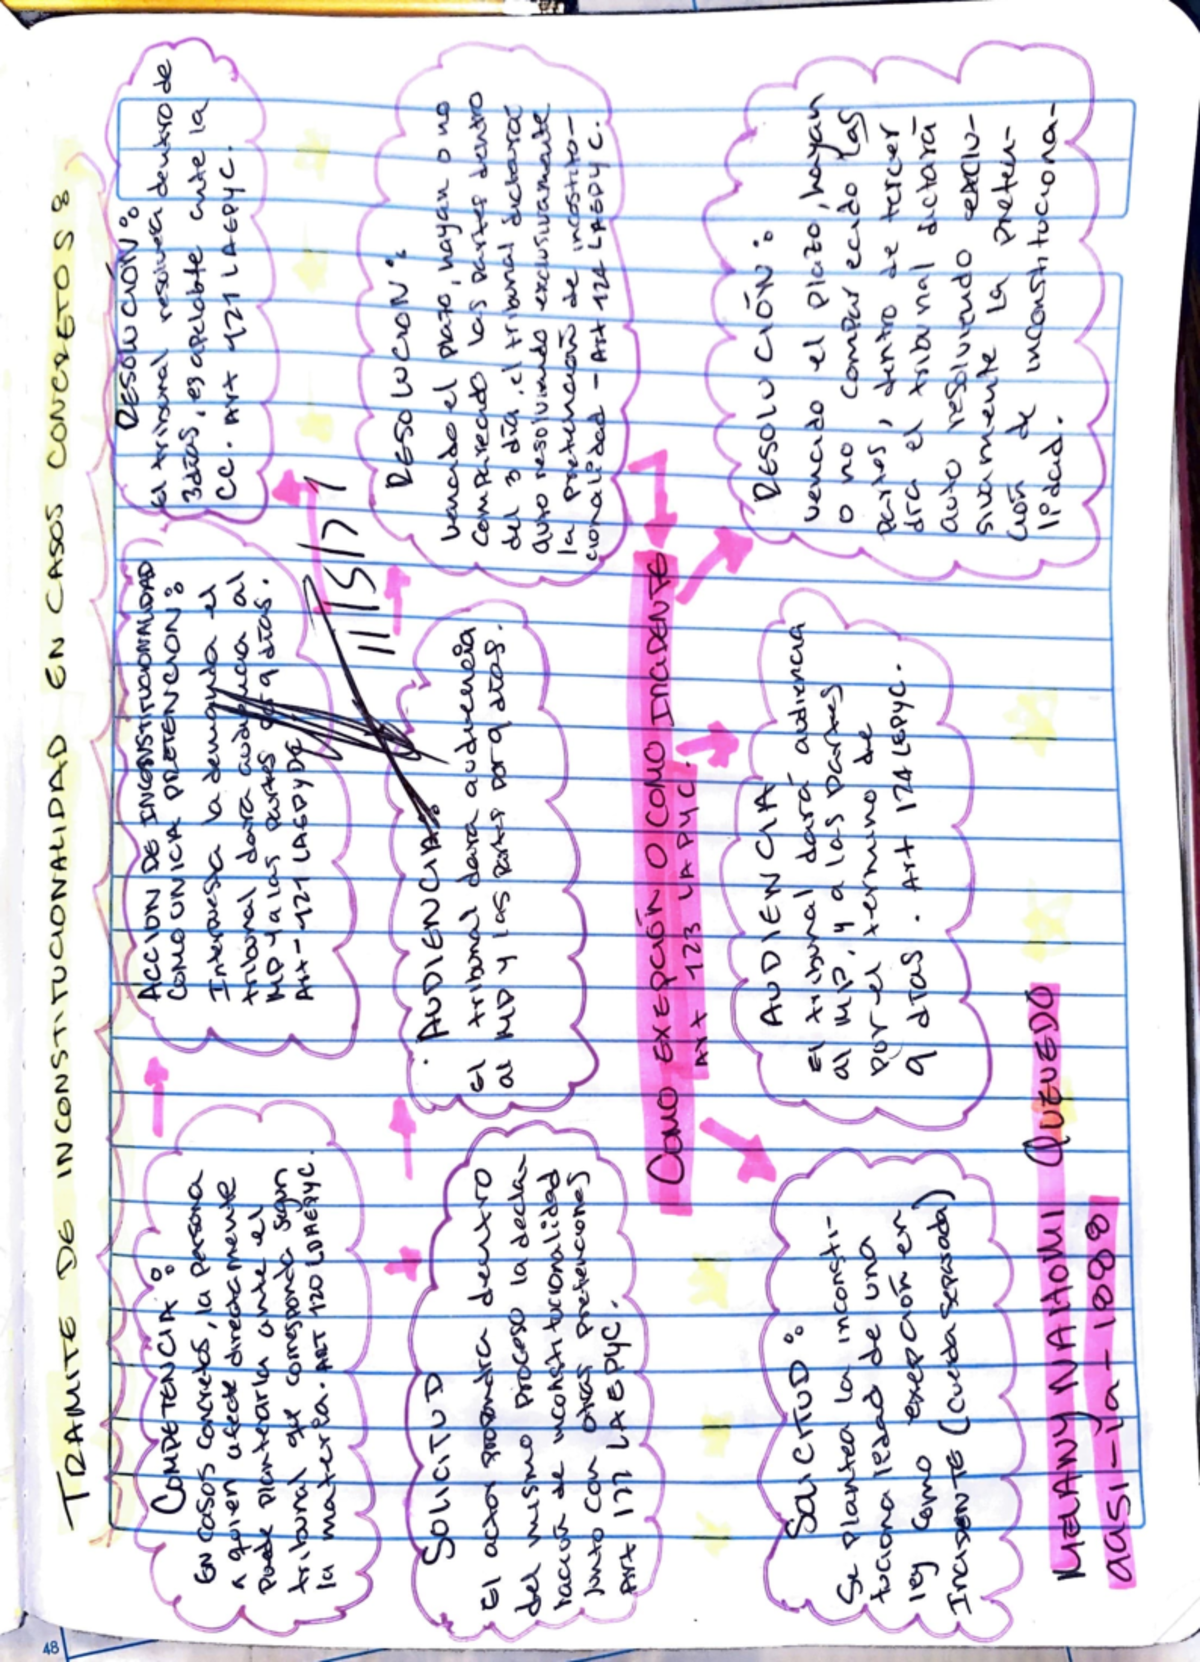 TRAMITE DE INCONSTITUCIONALIDAD EN CASOS CONCRETOS:
COMPETENCIA:
EN CASOS CONCRETOS, la persona
A quien afecte directamente
puede plantearla ante el
tribunal que corresponda segun
la materia. ART 120 LDAEPYC.
ACCION DE INCONSTITUCIONALIDAD
COMO UNICA PRETENCION:
Interpuesta la demanda el
tribunal dara audiencia al
MP y a las partes 9 días.
Art-121 LAEPYDC
RESOLUCIÓN:
El tribunal resolvera dentro de
3días, es apelable ante la
CC. Art 121 LAEPYC.
11/5/21
SOLICITUD
El actor propondra dentro
del mismo proceso la decla-
ración de inconstitucionalidad
junto con otras pretenciones
Art 122 LAEPYC.
AUDIENCIA:
El tribunal dara audiencia
al MP y las partes por 9 días.
RESOLUCION:
Vencido el plazo, hayan o no
comparecido las partes dentro
del 3 día, el tribunal dictara
auto resolvindo exclusivamente
la pretención de incostitu-
cionalidad - Art 124 LAEPYC.
COMO EXEPCIÓN O COMO INCIDENTE
Art 123 LAPYC.
SOLICITUD:
Se plantea la inconsti-
tucionalidad de una
ley como exepción en
INCIDENTE (cuerda separada)
AUDIENCIA
El tribunal dará audiencia
al MP, y a las partes
por el termino de
9 días. Art 124 LEPYC.
RESOLUCIÓN:
Vencido el plazo, hayan
o no comparecido las
partes, dentro de tercer
dra el tribunal dictará
auto resolvindo exclu-
sivamente la preten-
ción de inconstituciona-
lidad.
MELANY NAHOMI QUEVEDO
9951-19-1088
48